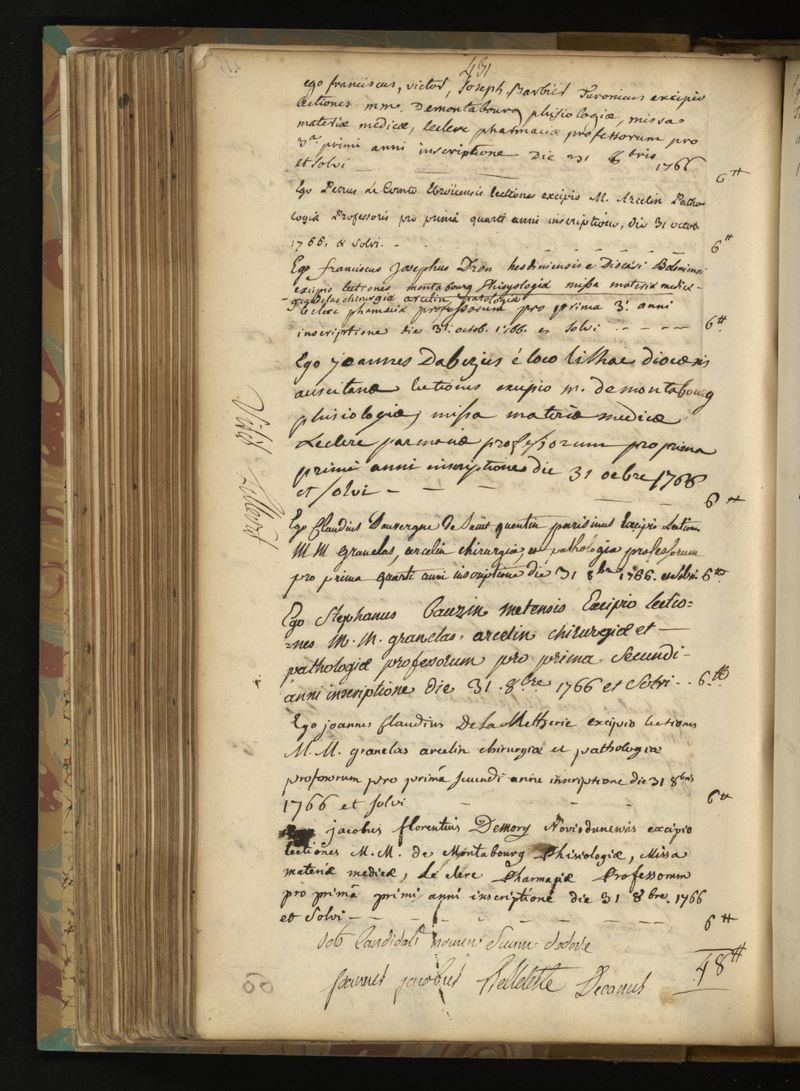 431
ego franciscus, victor, Joseph Barbier Turonicus excipio
lectiones mm. Demontabourg phisiologiæ, missa
materiæ medicæ, leclerc pharmaciæ professorum pro
3ª primi anni inscriptione die 31 8bris 1766
et solvi 6tt
Ego Petrus Le Comte Ebroicensis lectiones excipio M. Arcelin Patho-
logiæ Professoris pro primâ quarti anni inscriptione, die 31 octob.
1766, et solvi. 6tt
Ego franciscus Josephus Dron hesdiniensis è Diocesi Boloniensi
excipio lectiones montabourg Phisyologiæ missa materiæ medicæ
granclas chirurgiæ arcelin patologiæ
leclerc phamaciæ professorum pro prima 3i anni
inscriptione die 31 octob. 1766 et solvi 6tt
Ego joannes Dabezies è loco tilhac diocæsis
auscitanæ lectiones excipio m. demontabourg
phisiologiæ, missa materiæ medicæ
Leclerc parmaciæ professorum pro prima
primi anni inscriptiones die 31 octbre 1766
et solvi 6tt
Ego Claudius Dauvergne de Saint quentin parisinus Excipio Lectiones
MM granclas, arcelin chirurgiæ et pathologiæ professorum
pro prima quarti anni inscriptione die 31 8bre 1766. et solvi. 6tt
Ego Stephanus Cauzin metensis Excipio lectio=
=nes M. M. granclas. arcelin chirurgiæ et
pathologiæ professorum pro prima secundi
anni inscriptione die 31. 8bre 1766 et solvi. 6tt
Ego joannes Claudius De La Metherie excipio lectiones
M. M. granclas arcelin chirurgiæ et pathologiæ
professorum pro primâ secundi anni inscriptione die 31 8bris
1766 et solvi 6tt
Ego jacobus florentius Demory Noviodunensis excipio
lectiones M. M. de Montabourg Phisiologiæ, Missa
materiæ medicæ, Le clerc Pharmaciæ Professorum
pro primâ primi anni inscriptione die 31 8bre. 1766
et solvi 6tt
octo Candidati nomen suum dedere
48tt
Joannes jacobus Decanus